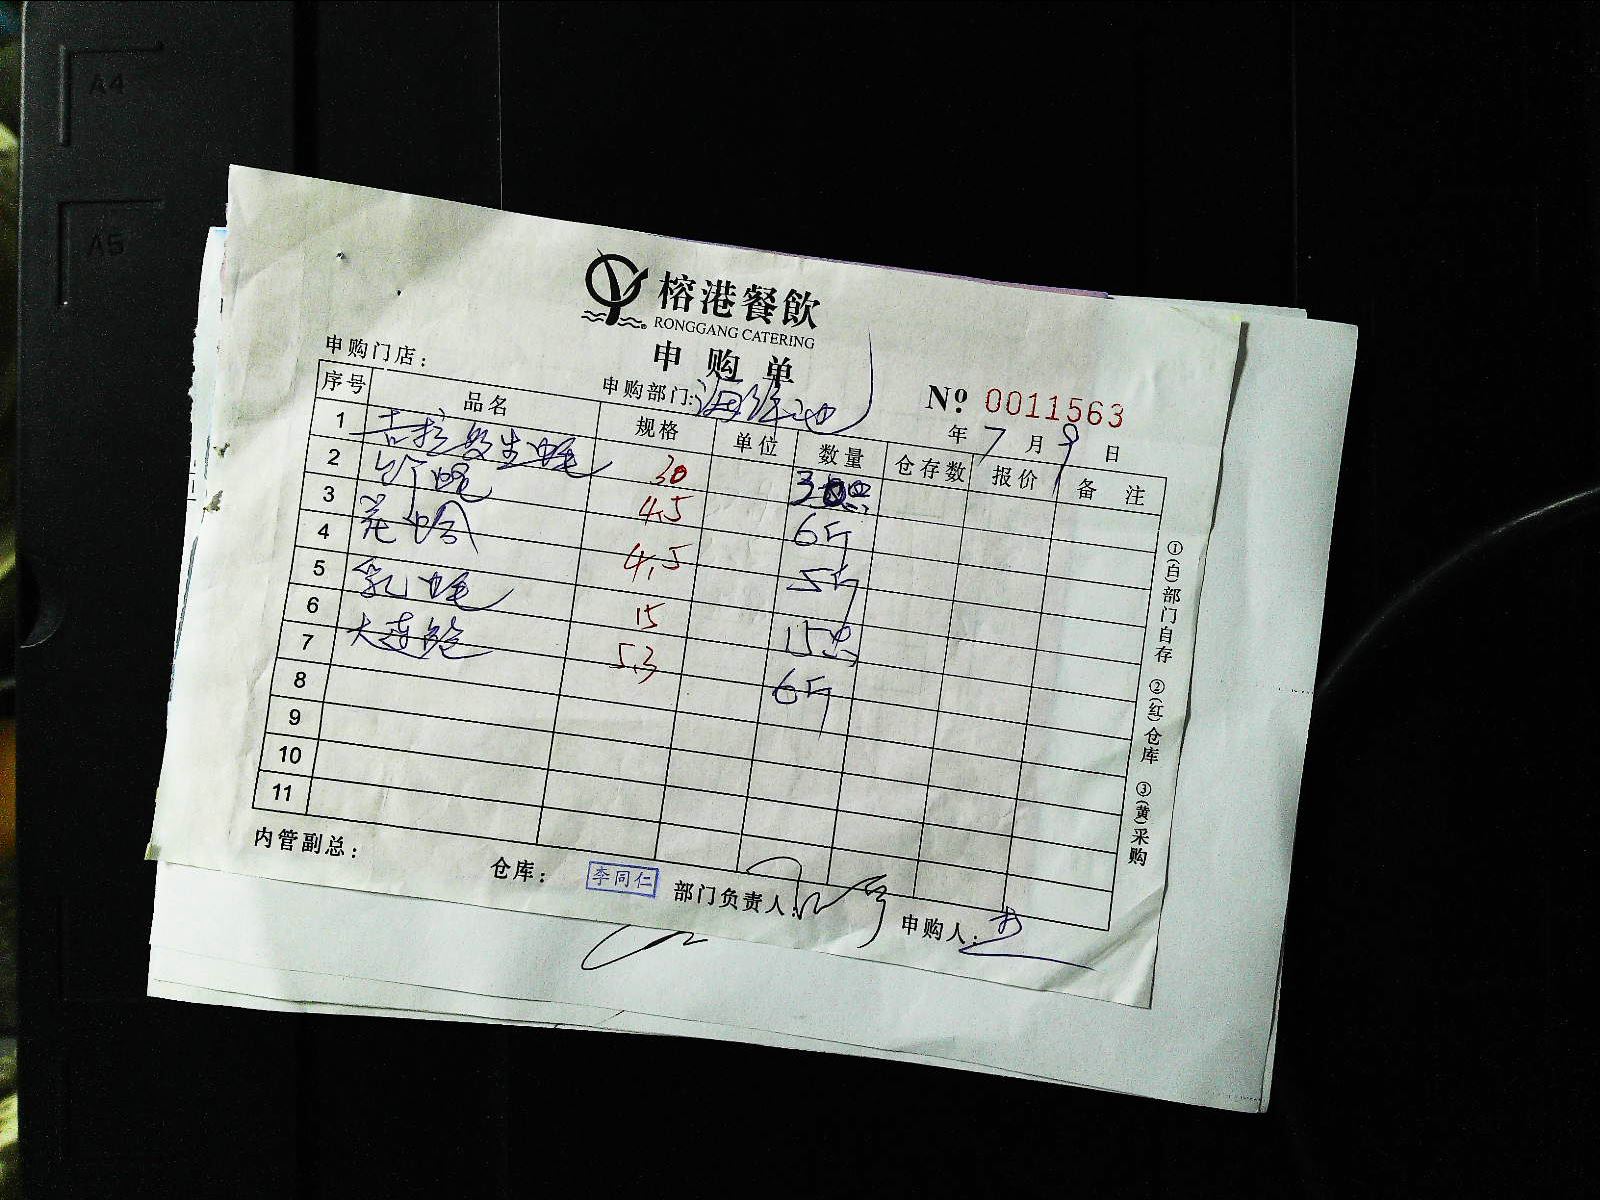 A4
A5
榕港餐飲
RONGGANG CATERING
申购单
申购门店：
申购部门：海鲜池
№ 0011563
年 7 月 9 日
序号 品名 规格 单位 数量 仓存数 报价 备注
1 吉拉多生蚝 30 30只
2 竹蛏 4.5 6斤
3 花蛤 4.5 5斤
4 乳蚝 15 15只
5 大连鲍 5.3 6斤
6
7
8
9
10
11
①(白)部门自存 ②(红)仓库 ③(黄)采购
内管副总：
仓库：李同仁
部门负责人：
申购人：